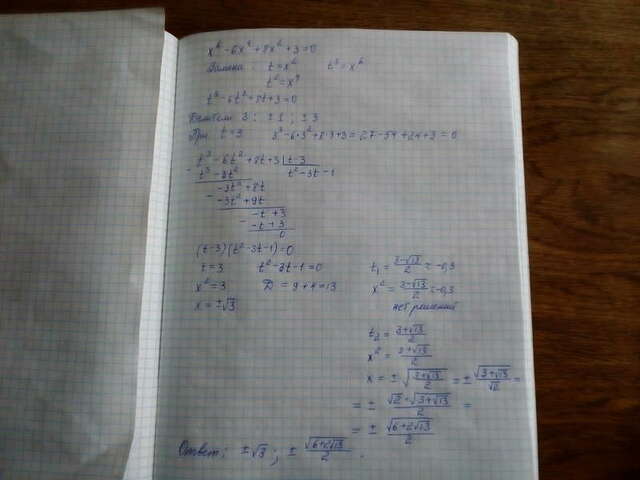 x⁶ - 6x⁴ + 8x² + 3 = 0
Замена: t = x² t³ = x⁶
t² = x⁴
t³ - 6t² + 8t + 3 = 0
Делители 3: ±1; ±3
При t = 3 3³ - 6·3² + 8·3 + 3 = 27 - 54 + 24 + 3 = 0
t³ - 6t² + 8t + 3 | t - 3
t³ - 3t² t² - 3t - 1
-3t² + 8t
-3t² + 9t
-t + 3
-t + 3
0
(t - 3)(t² - 3t - 1) = 0
t = 3 t² - 3t - 1 = 0
x² = 3 D = 9 + 4 = 13
x = ±√3
t₁ = (3 - √13)/2 ≈ -0,3
x² = (3 - √13)/2 ≈ -0,3
нет решений
t₂ = (3 + √13)/2
x² = (3 + √13)/2
x = ± √((3 + √13)/2) = ± √(3 + √13)/√2 =
= ± √2·√(3 + √13)/2 =
= ± √(6 + 2√13)/2
Ответ: ±√3; ± √(6 + 2√13)/2.